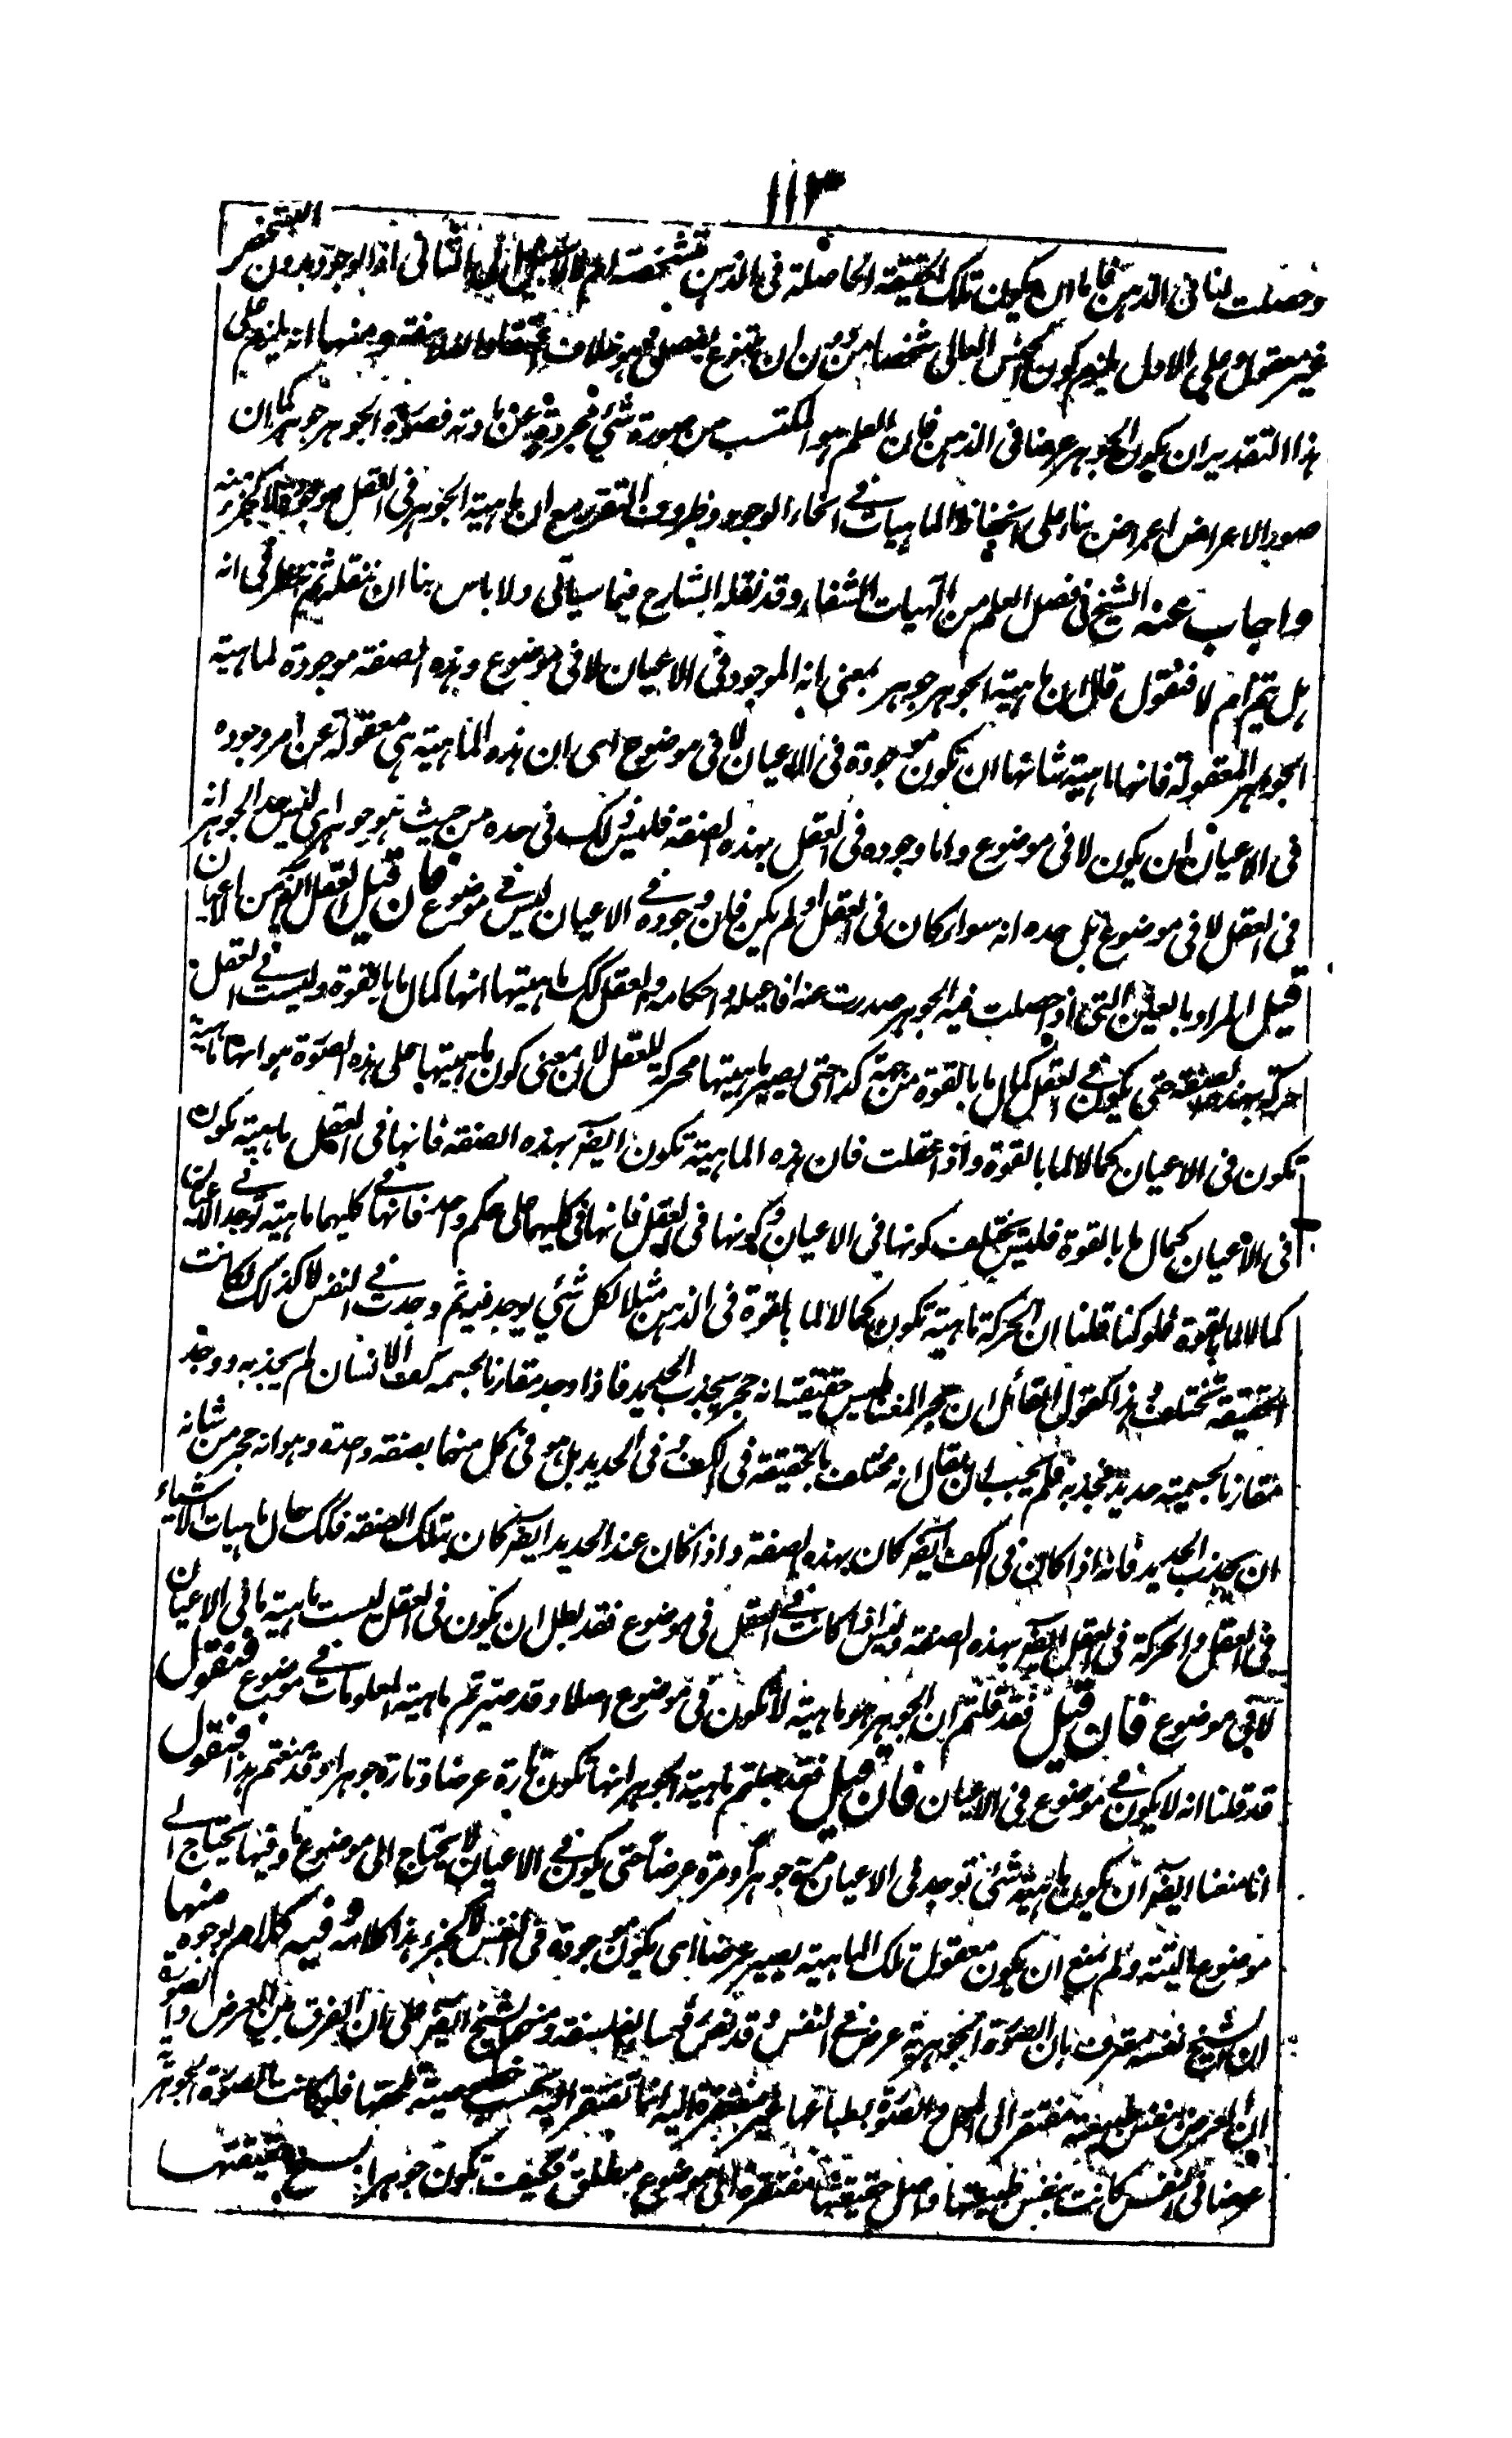 ١١٣
وحصلت لنا فى الذهن فاما ان يكون تلك الحقيقة الحاصلة فى الذهن متشخصة ام لا لا سبيل الى الثانى اذ الوجود بدون التشخص
غير معقول وعلى الاول يلزم كون الجنس العالى شخصا من دون ان يتنوع بفصل وهو خلاف ومنها انه يلزم على
هذا التقدير ان يكون الجوهر عرضا فى الذهن فان العلم هو المكتسب من صورة شئ مجردة عن مادته فصورة الجوهر جوهر كما ان
صور الاعراض اعراض بناء على انحفاظ الماهيات فى انحاء الوجود وظروف التقرر مع ان ماهية الجوهر فى العقل موجودة لا كجزء منه
واجاب عنه الشيخ فى فصل العلم من الهيات الشفاء وقد نقله الشارح فيما سياتى ولا باس بنا ان ننقله ثم ننظر فى انه
هل يتم ام لا فنقول قال ان ماهية الجوهر جوهر بمعنى انه الموجود فى الاعيان لا فى موضوع وهذه الصفة موجودة لماهية
الجوهر المعقولة فانها ماهية شانها ان تكون موجودة فى الاعيان لا فى موضوع اى ان هذه الماهية هى معقولة عن امر وجوده
فى الاعيان ان يكون لا فى موضوع واما وجوده فى العقل بهذه الصفة فليس ذلك فى حده من حيث هو جوهر اى ليس حد الجوهر انه
فى العقل لا فى موضوع بل حده انه سواء كان فى العقل او لم يكن فان وجوده فى الاعيان ليس فى موضوع فان قيل العقل ايضا من الاعيان
قيل المراد بالعين التى اذا حصلت فيه الجوهر صدرت عنه افاعيله واحكامه والعقل كك ماهيتها انها كمال ما بالقوة وليست فى العقل
حركة بهذه الصفة حتى يكون فى العقل كمال ما بالقوة من جهة كذا حتى يصير ماهيتها محركة للعقل لان معنى كون ماهيتها على هذه الصورة هو انها ماهية
تكون فى الاعيان كمالا لما بالقوة واذا عقلت فان هذه الماهية تكون ايضا بهذه الصفة فانها فى العقل ماهية تكون
فى الاعيان كمال ما بالقوة فليس يختلف كونها فى الاعيان وكونها فى العقل فانها فى كليهما على حكم واحد فانها فى كليهما ماهية توجد فى الاعيان
كمالا لما بالقوة فلو كنا قلنا ان الحركة ماهية تكون كمالا لما بالقوة فى الذهن مثلا لكل شئ يوجد فيه ثم وجدت فى النفس لا كذلك لكانت
الحقيقة تختلف وهذا كقول القائل ان حجر المغناطيس حقيقته انه حجر يجذب الحديد فاذا وجد مقارنا لجسمية كف الانسان لم يجذبه ووجد
مقارنا لجسمية حديد فجذبه فلم يجب ان يقال انه مختلف بالحقيقة فى الكف وفى الحديد بل هو فى كل منهما بصفة واحدة وهو انه حجر من شانه
ان يجذب الحديد فانه اذا كان فى الكف ايضا كان بهذه الصفة واذا كان عند الحديد ايضا كان بتلك الصفة فكك حال ماهيات الاشياء
فى العقل والحركة فى العقل ايضا بهذه الصفة وليس اذا كانت فى العقل فى موضوع فقد بطل ان يكون فى العقل ليست ماهية ما فى الاعيان
لا فى موضوع فان قيل فقد قلتم ان الجوهر هو ماهية لا تكون فى موضوع اصلا وقد صيرتم ماهية المعلومات فى موضوع فنقول
قد قلنا انه لا يكون فى موضوع فى الاعيان فان قيل فقد جعلتم ماهية الجوهر انها تكون تارة عرضا وتارة جوهرا وقد منعتم هذا فنقول
انا منعنا ايضا ان يكون ماهية شئ توجد فى الاعيان مرة جوهرا ومرة عرضا حتى يكون فى الاعيان لا يحتاج الى موضوع ما وفيها يحتاج الى
موضوع البتة ولم نمنع ان يكون معقول تلك الماهية يصير عرضا اى يكون موجودة فى النفس لا كجزء هذا كلامه وفيه كلام لوجوه منها
ان الشيخ نفسه معترف بان الصورة الجوهرية عرض فى النفس وقد نص الفلاسفة ومنهم الشيخ ايضا على ان الفرق بين العرض والصورة
ان العرض بنفس طبيعته مفتقر الى المحل والصورة بطباعها غير مفتقرة اليه انما تفتقر اليه بحسب فلو كانت الصورة الجوهرية
عرضا فى النفس كانت بنفس طبيعتها واصل حقيقتها مفتقرة الى موضوع مطلق فكيف تكون جوهرا بسنخ حقيقتها